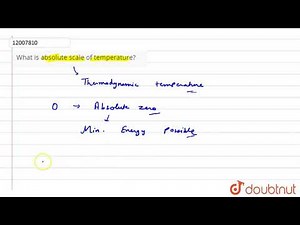 12007810
What is absolute scale of temperature?
Thermodynamic temperature
0 → Absolute zero
Min. Energy Possible
doubtnut